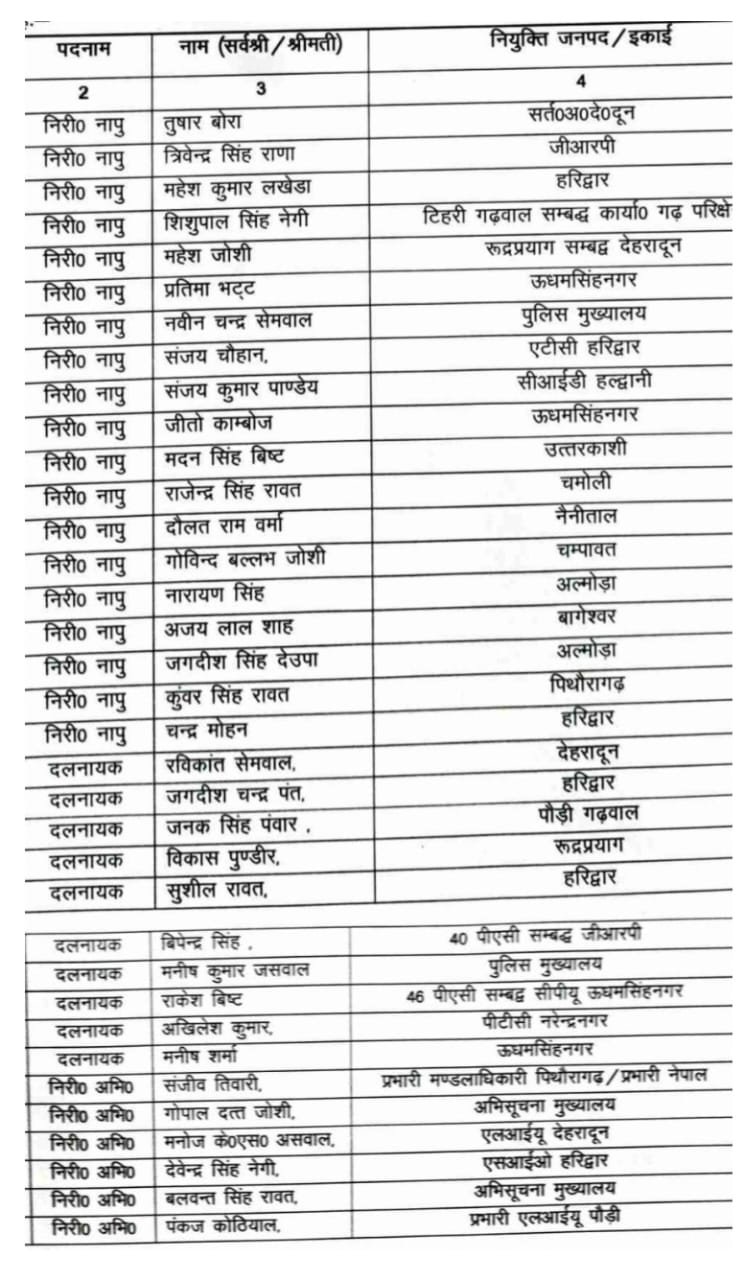 पदनाम नाम (सर्वश्री/श्रीमती) नियुक्ति जनपद/इकाई
2 3 4
निरी0 नापु तुषार बोरा सर्त0अ0दे0दून
निरी0 नापु त्रिवेन्द्र सिंह राणा जीआरपी
निरी0 नापु महेश कुमार लखेडा हरिद्वार
निरी0 नापु शिशुपाल सिंह नेगी टिहरी गढ़वाल सम्बद्ध कार्या0 गढ़ परिक्षे
निरी0 नापु महेश जोशी रूद्रप्रयाग सम्बद्व देहरादून
निरी0 नापु प्रतिमा भट्ट ऊधमसिंहनगर
निरी0 नापु नवीन चन्द्र सेमवाल पुलिस मुख्यालय
निरी0 नापु संजय चौहान, एटीसी हरिद्वार
निरी0 नापु संजय कुमार पाण्डेय सीआईडी हल्द्वानी
निरी0 नापु जीतो काम्बोज ऊधमसिंहनगर
निरी0 नापु मदन सिंह बिष्ट उत्तरकाशी
निरी0 नापु राजेन्द्र सिंह रावत चमोली
निरी0 नापु दौलत राम वर्मा नैनीताल
निरी0 नापु गोविन्द बल्लभ जोशी चम्पावत
निरी0 नापु नारायण सिंह अल्मोड़ा
निरी0 नापु अजय लाल शाह बागेश्वर
निरी0 नापु जगदीश सिंह देउपा अल्मोड़ा
निरी0 नापु कुंवर सिंह रावत पिथौरागढ़
निरी0 नापु चन्द्र मोहन हरिद्वार
दलनायक रविकांत सेमवाल, देहरादून
दलनायक जगदीश चन्द्र पंत, हरिद्वार
दलनायक जनक सिंह पंवार , पौड़ी गढ़वाल
दलनायक विकास पुण्डीर, रूद्रप्रयाग
दलनायक सुशील रावत, हरिद्वार
दलनायक बिपेन्द्र सिंह , 40 पीएसी सम्बद्ध जीआरपी
दलनायक मनीष कुमार जसवाल पुलिस मुख्यालय
दलनायक राकेश बिष्ट 46 पीएसी सम्बद्व सीपीयू ऊधमसिंहनगर
दलनायक अखिलेश कुमार, पीटीसी नरेन्द्रनगर
दलनायक मनीष शर्मा ऊधमसिंहनगर
निरी0 अभि0 संजीव तिवारी, प्रभारी मण्डलाधिकारी पिथौरागढ़/प्रभारी नेपाल
निरी0 अभि0 गोपाल दत्त जोशी, अभिसूचना मुख्यालय
निरी0 अभि0 मनोज के0एस0 असवाल, एलआईयू देहरादून
निरी0 अभि0 देवेन्द्र सिंह नेगी, एसआईओ हरिद्वार
निरी0 अभि0 बलवन्त सिंह रावत, अभिसूचना मुख्यालय
निरी0 अभि0 पंकज कोठियाल, प्रभारी एलआईयू पौड़ी